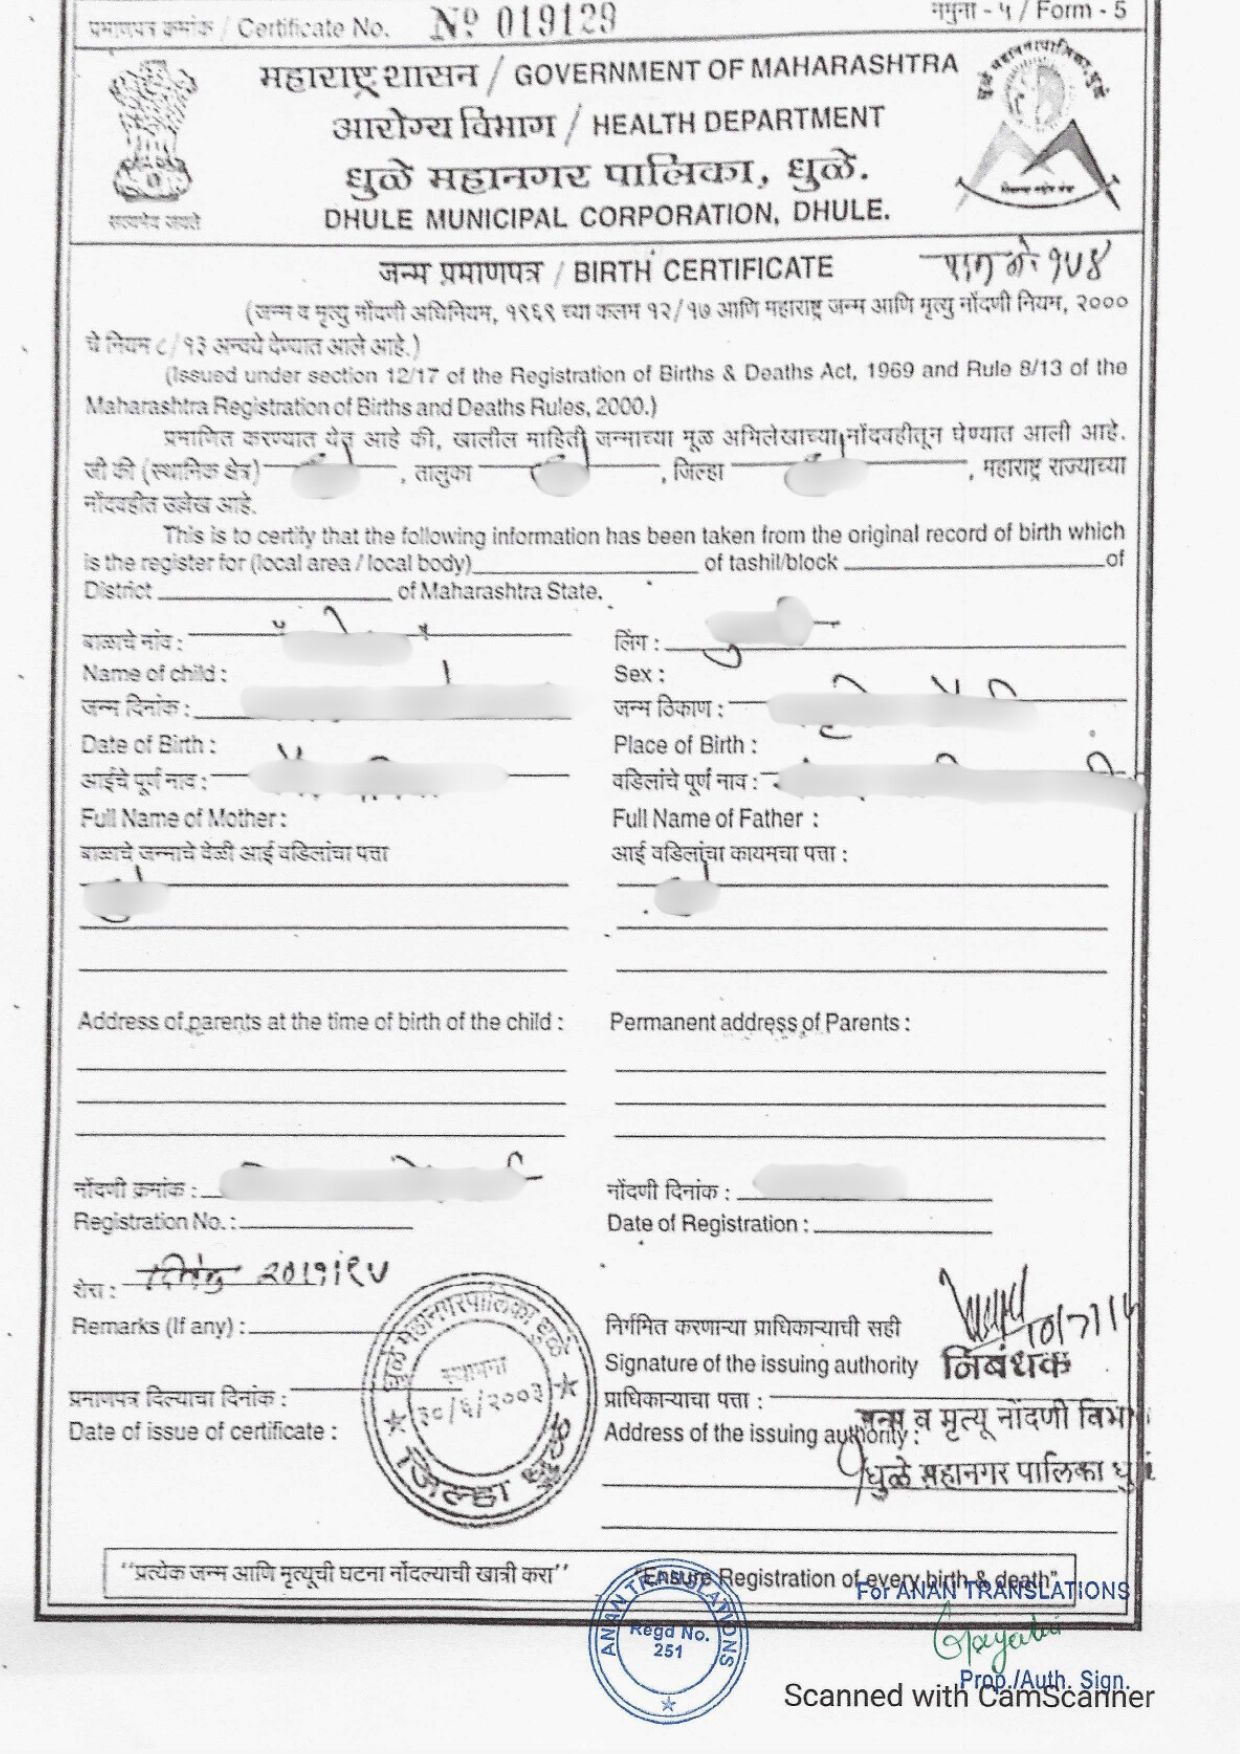 प्रमाणपत्र क्रमांक / Certificate No. Nº 019129 नमुना - ५ / Form - 5
महाराष्ट्र शासन / GOVERNMENT OF MAHARASHTRA
आरोग्य विभाग / HEALTH DEPARTMENT
धुळे महानगर पालिका, धुळे.
DHULE MUNICIPAL CORPORATION, DHULE.
सत्यमेव जयते
धुळे महानगरपालिका, धुळे
जन्म प्रमाणपत्र / BIRTH CERTIFICATE
(जन्म व मृत्यु नोंदणी अधिनियम, १९६९ च्या कलम १२/१७ आणि महाराष्ट्र जन्म आणि मृत्यु नोंदणी नियम, २०००
चे नियम ८/१३ अन्वये देण्यात आले आहे.)
(Issued under section 12/17 of the Registration of Births & Deaths Act, 1969 and Rule 8/13 of the
Maharashtra Registration of Births and Deaths Rules, 2000.)
प्रमाणित करण्यात येत आहे की, खालील माहिती जन्माच्या मूळ अभिलेखाच्या नोंदवहीतून घेण्यात आली आहे.
जी की (स्थानिक क्षेत्र) , तालुका , जिल्हा , महाराष्ट्र राज्याच्या
नोंदवहीत उल्लेख आहे.
This is to certify that the following information has been taken from the original record of birth which
is the register for (local area / local body) of tashil/block of
District of Maharashtra State.
बाळाचे नांव : लिंग :
Name of child : Sex :
जन्म दिनांक : जन्म ठिकाण :
Date of Birth : Place of Birth :
आईचे पूर्ण नाव : वडिलांचे पूर्ण नाव :
Full Name of Mother : Full Name of Father :
बाळाचे जन्माचे वेळी आई वडिलांचा पत्ता आई वडिलांचा कायमचा पत्ता :
Address of parents at the time of birth of the child : Permanent address of Parents :
नोंदणी क्रमांक : नोंदणी दिनांक :
Registration No. : Date of Registration :
शेरा :
Remarks (If any) : निर्गमित करणाऱ्या प्राधिकाऱ्याची सही
Signature of the issuing authority निबंधक
प्रमाणपत्र दिल्याचा दिनांक : प्राधिकाऱ्याचा पत्ता :
Date of issue of certificate : Address of the issuing authority :
जन्म व मृत्यू नोंदणी विभा
धुळे महानगर पालिका धु
धुळे महानगरपालिका धुळे
स्थापना
३०/६/२००३
जिल्हा धुळे
"प्रत्येक जन्म आणि मृत्यूची घटना नोंदल्याची खात्री करा" "Ensure Registration of every birth & death"
ANAN TRANSLATIONS
Regd No.
251
For ANAN TRANSLATIONS
Prop./Auth. Sign.
Scanned with CamScanner